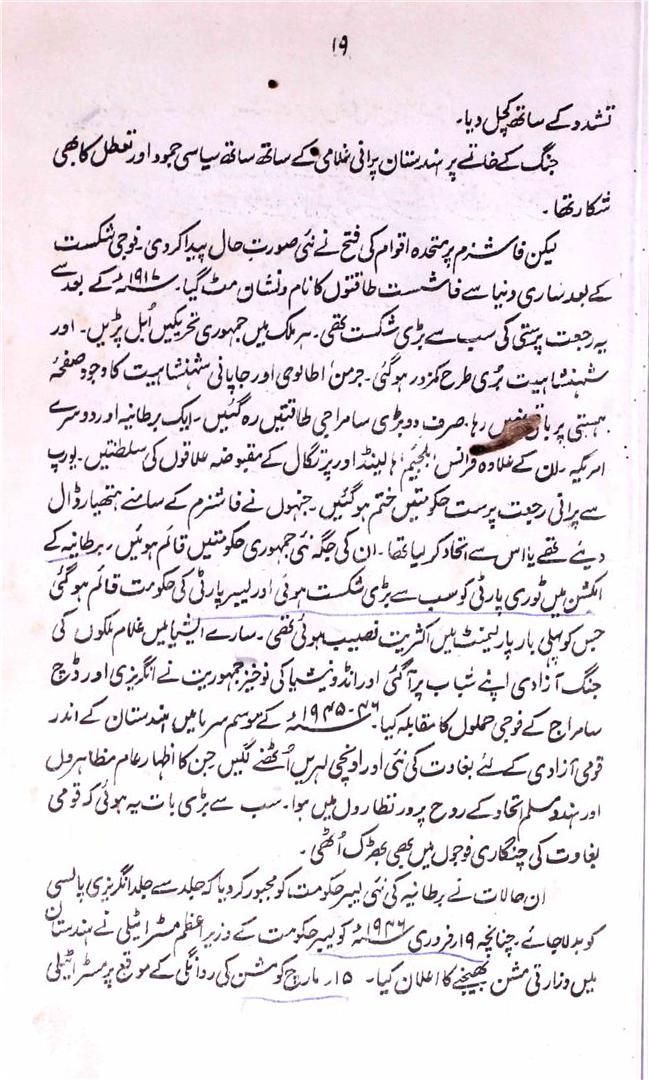 ۱۹
تشدد کے ساتھ کچل دیا۔
جنگ کے خاتمے پر ہندستان پرانی غلامی کے ساتھ ساتھ سیاسی جمود اور تعطل کا بھی
شکار تھا۔
لیکن فاشزم پر متحدہ اقوام کی فتح نے نئی صورت حال پیدا کردی۔ فوجی شکست
کے بعد ساری دنیا سے فاشست طاقتوں کا نام و نشان مٹ گیا۔ ۱۹۱۷ء کے بعد سے
یہ رجعت پرستی کی سب سے بڑی شکست تھی۔ ہر ملک میں جمہوری تحریکیں اُبل پڑیں۔ اور
شہنشاہیت بُری طرح کمزور ہو گئی۔ جرمن، اطالوی اور جاپانی شہنشاہیت کا وجود صفحۂ
ہستی پر باقی نہیں رہا۔ صرف دو بڑی سامراجی طاقتیں رہ گئیں۔ ایک برطانیہ اور دوسرے
امریکہ۔ ان کے علاوہ فرانس، بلجیم، ہالینڈ اور پرتگال کے مقبوضہ علاقوں کی سلطنتیں۔ یورپ
سے پرانی رجعت پرست حکومتیں ختم ہو گئیں۔ جنہوں نے فاشزم کے سامنے ہتھیار ڈال
دیئے تھے یا اس سے اتحاد کر لیا تھا۔ ان کی جگہ نئی جمہوری حکومتیں قائم ہوئیں، برطانیہ کے
الکشن میں ٹوری پارٹی کو سب سے بڑی شکست ہوئی اور لیبر پارٹی کی حکومت قائم ہو گئی
جس کو پہلی بار پارلیمنٹ میں اکثریت نصیب ہوئی تھی۔ سارے ایشیا میں غلام ملکوں کی
جنگ آزادی اپنے شباب پر آگئی اور انڈونیشیا کی نوخیز جمہوریت نے انگریزی اور ڈچ
سامراج کے فوجی حملوں کا مقابلہ کیا۔ ۴۶-۱۹۴۵ء کے موسم سرما میں ہندستان کے اندر
قومی آزادی کے لئے بغاوت کی نئی اور اونچی لہریں اُٹھنے لگیں جن کا اظہار عام مظاہروں
اور ہندو مسلم اتحاد کے روح پرور نظاروں میں ہوا۔ سب سے بڑی بات یہ ہوئی کہ قومی
بغاوت کی چنگاری فوجوں میں بھی بھڑک اُٹھی۔
ان حالات نے برطانیہ کی نئی لیبر حکومت کو مجبور کر دیا کہ جلد سے جلد انگریزی پالسی
کو بدلا جائے۔ چنانچہ ۱۹؍ فروری ۱۹۴۶ء کو لیبر حکومت کے وزیر اعظم مسٹر اٹیلی نے ہندستان
میں وزارتی مشن بھیجنے کا اعلان کیا۔ ۱۵؍ مارچ کو مشن کی روانگی کے موقع پر مسٹر اٹیلی